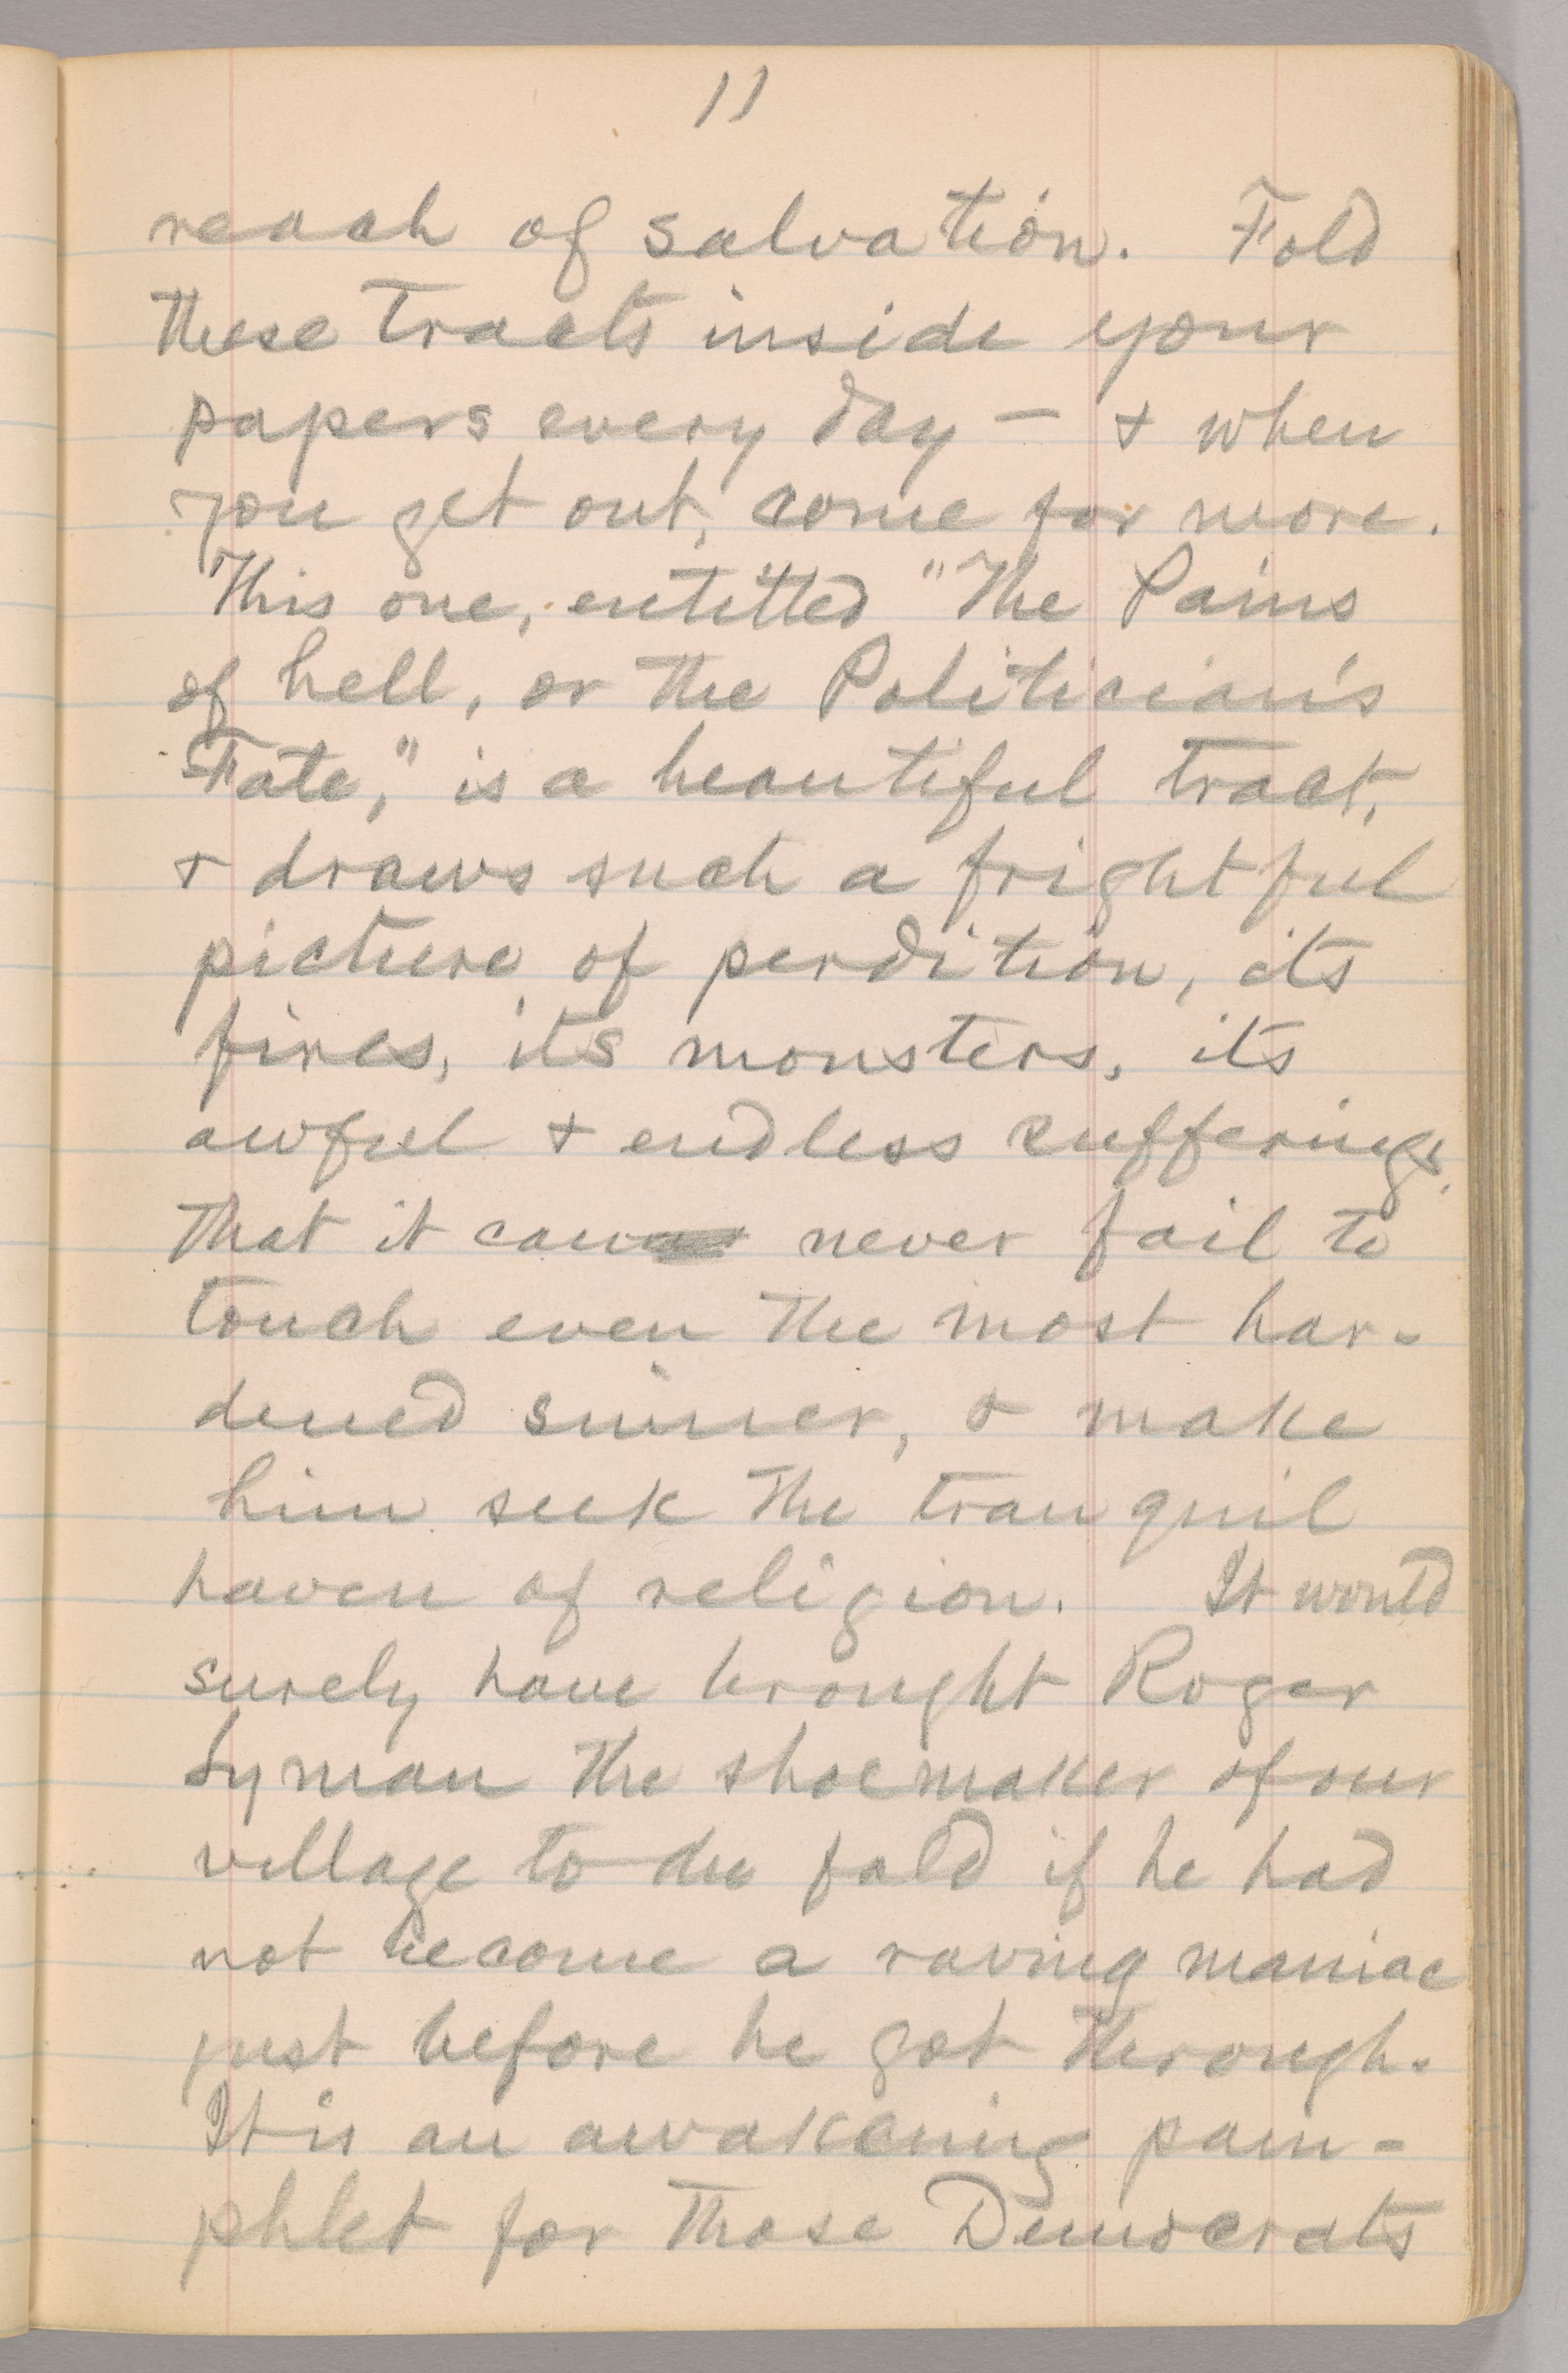 11
reach of salvation. Fold
these tracts inside your
papers every day — & when
you get out, come for more.
This one, entitled "The Pains
of hell, or the Politician's
Fate," is a beautiful tract,
& draws such a frightful
picture of perdition, its
fires, its monsters, its
awful & endless sufferings,
that it can never fail to
touch even the most har-
dened sinner, & make
him seek the tranquil
haven of religion. It would
surely have brought Roger
Lyman the shoemaker of our
village to the fold if he had
not become a raving maniac
just before he got through.
It is an awakening pam-
phlet for those Democrats